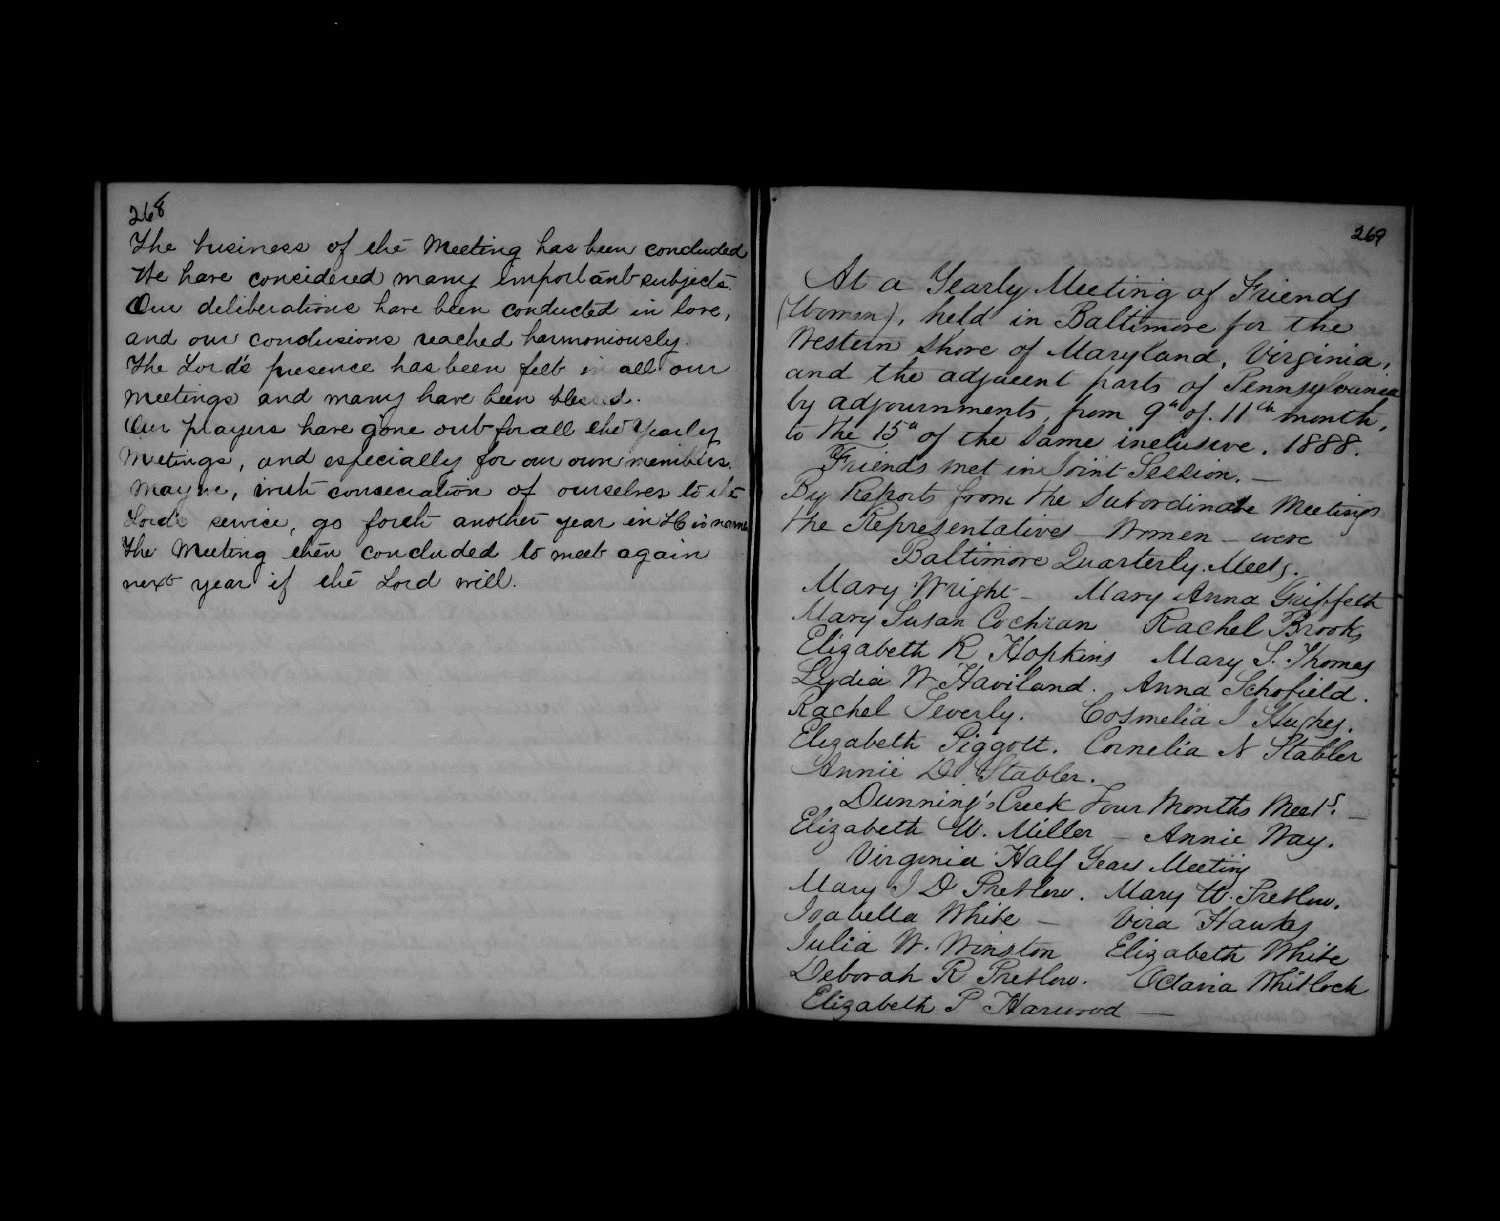 268
The business of the Meeting has been concluded
We have considered many important subjects.
Our deliberations have been conducted in love,
and our conclusions reached harmoniously.
The Lord's presence has been felt in all our
meetings and many have been blessed.
Our prayers have gone out for all the Yearly
Meetings, and especially for our own members.
May we, with consecration of ourselves to the
Lord's service, go forth another year in His name
The Meeting then concluded to meet again
next year if the Lord will.
269
At a Yearly Meeting of Friends
(Women), held in Baltimore for the
Western Shore of Maryland, Virginia,
and the adjacent parts of Pennsylvania
by adjournments, from 9th of 11th month,
to the 15th of the same inclusive. 1888.
Friends met in Joint Session. —
By Reports from the Subordinate Meetings
the Representatives Women - were
Baltimore Quarterly Meetg.
Mary Wright - Mary Anna Griffeth
Mary Susan Cochran Rachel Brooks
Elizabeth R Hopkins Mary S. Thomas
Lydia W Haviland. Anna Schofield.
Rachel Severly. Cosmelia J Hughes.
Elizabeth Piggott. Cornelia N Stabler
Annie D Stabler.
Dunning's Creek Four Months Meetg. —
Elizabeth W. Miller — Annie Way.
Virginia Half Years Meeting
Mary J D Pretlow. Mary W. Pretlow.
Isabella White — Vira Hawkes
Julia W. Winston Elizabeth White
Deborah R Pretlow. Octavia Whitlock
Elizabeth P Harwood —